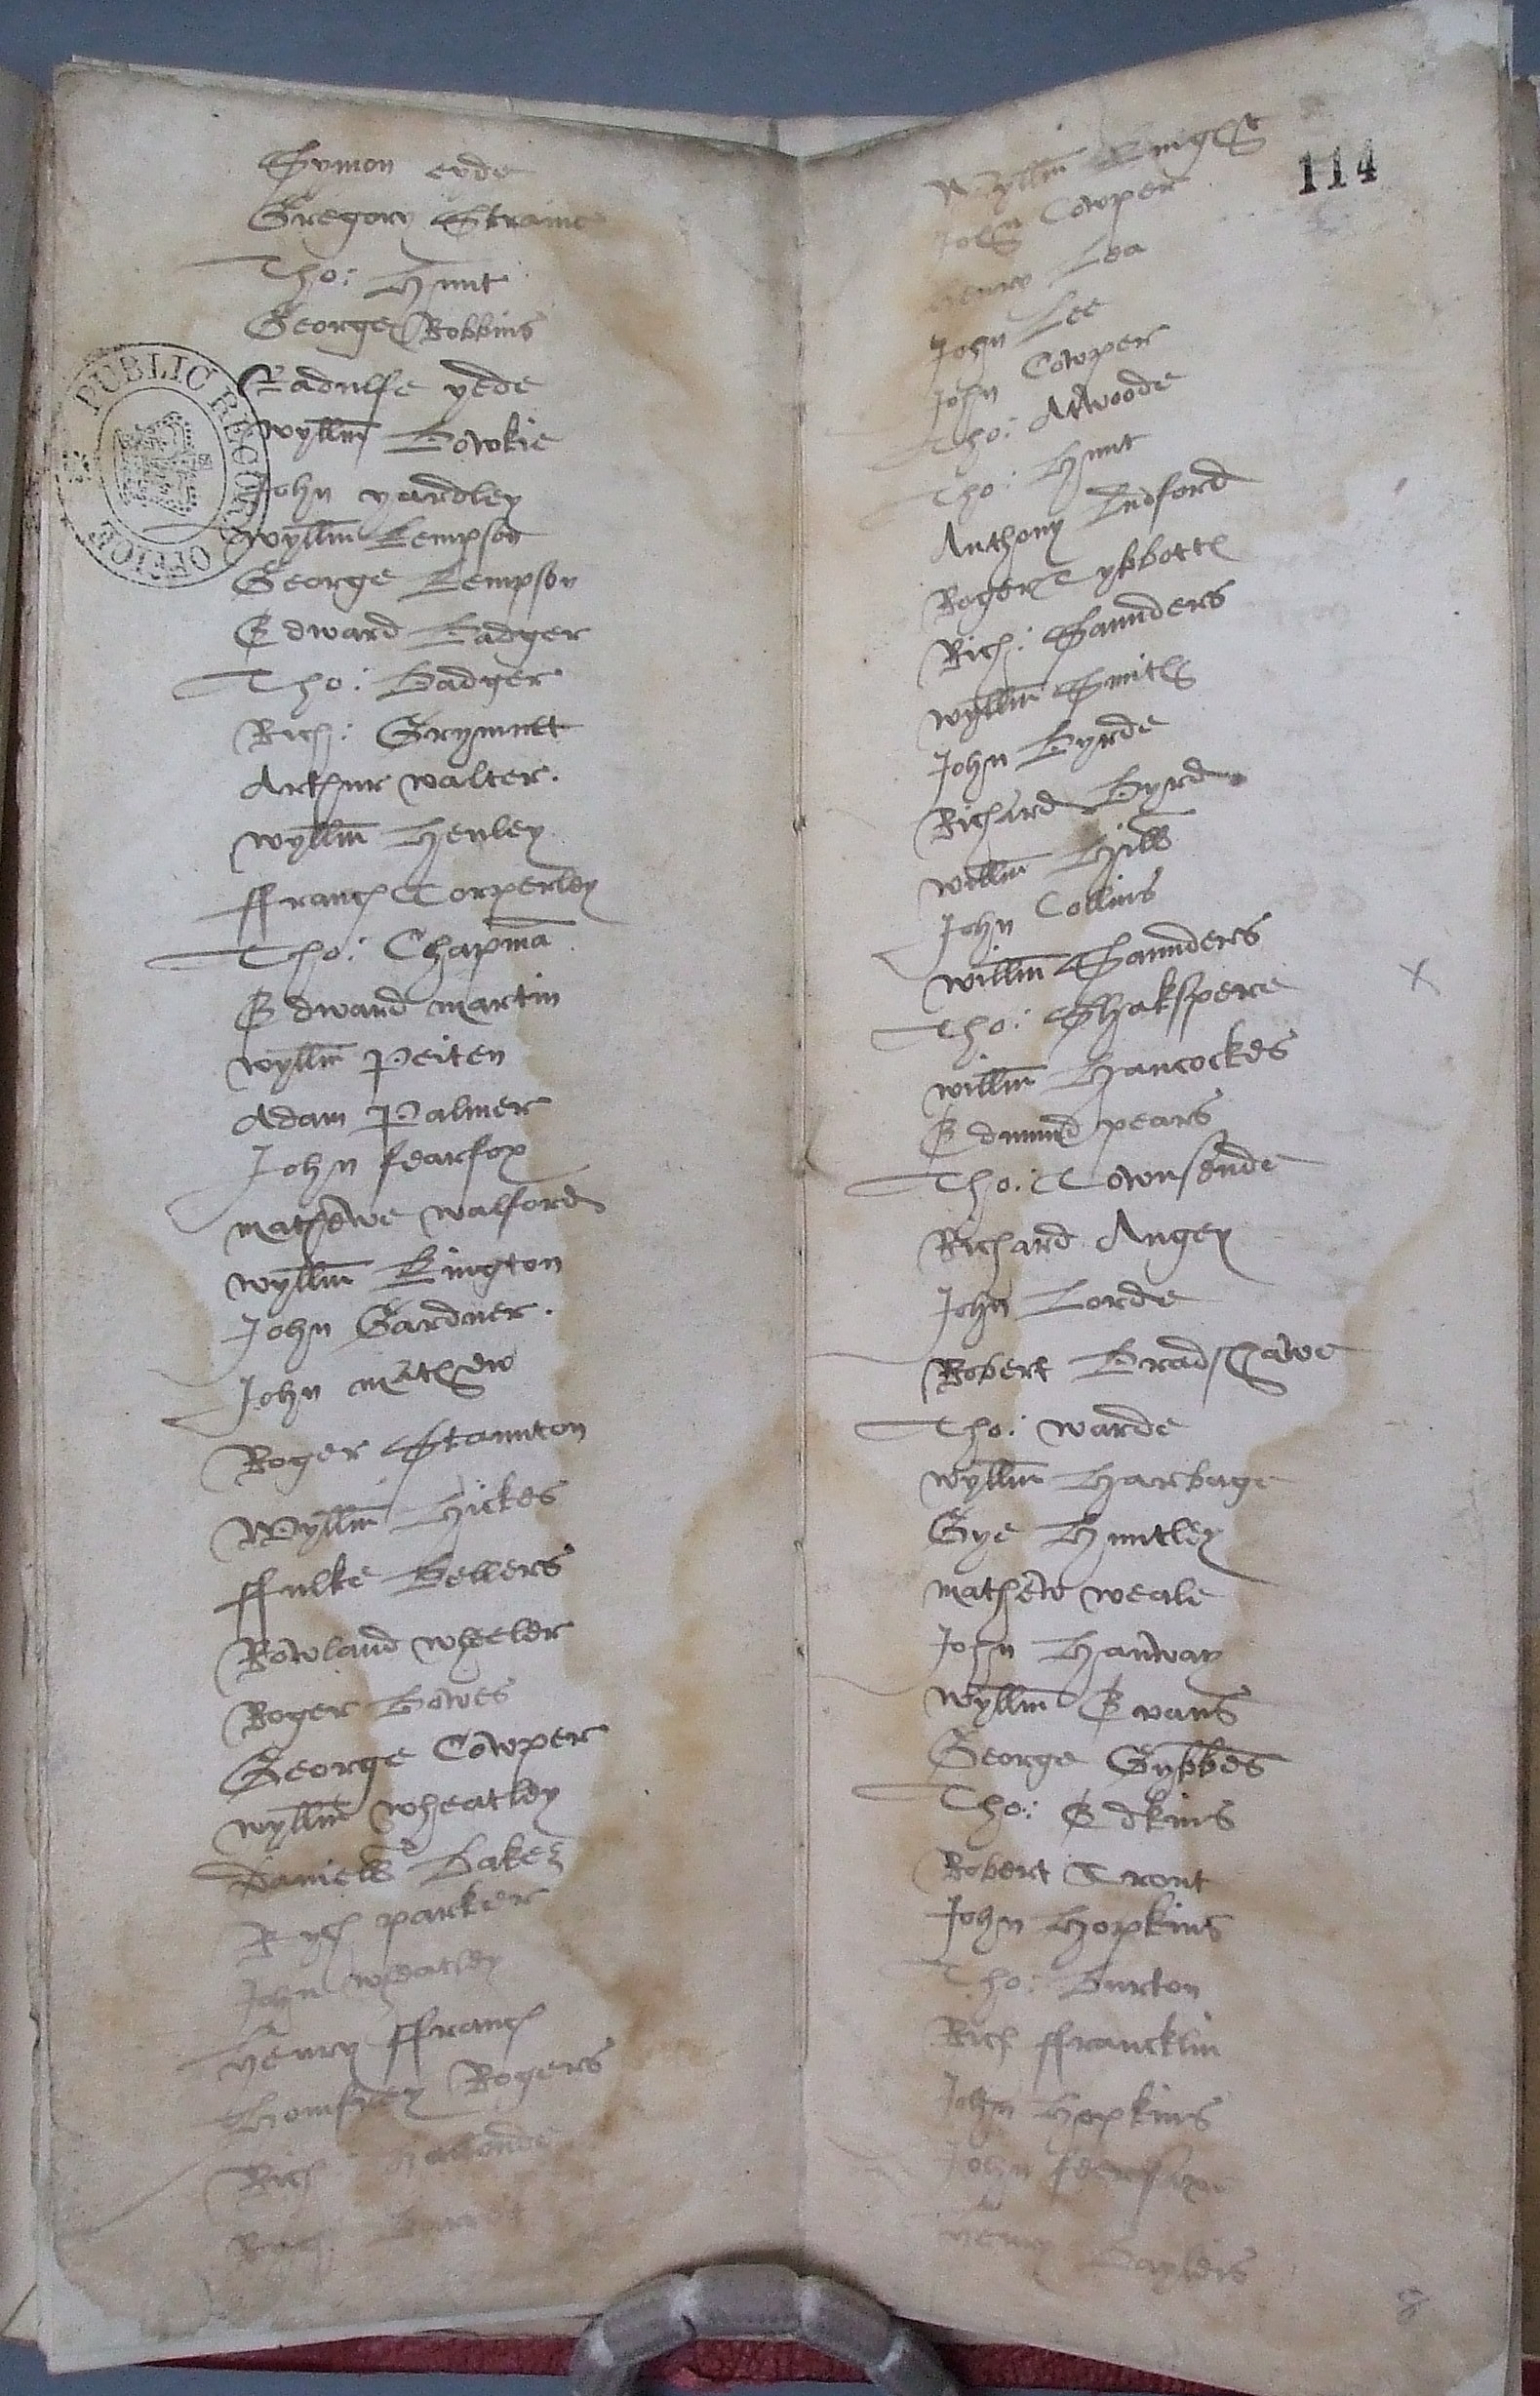 Symon eede
Gregory Straine
Tho: Hunt
George Robbins
Radulfe yede
wyllm Bowkie
John yardley
wyllm Kempson
George Kempson
Edward Badger
Tho: Badger
Rich: Grymitt
Arthur walter.
wyllm Henley
ffranc Torperley
Tho: Chapma
Edward martin
wyllm Peiten
Adam Palmer
John fearfox
mathewe walford
wyllm Kington
John Gardner.
John mathew
Roger Staunton
Wyllm Hickes
ffulke Sellers
Rowland wheeler
Roger Bowes
George Cowper
wyllm wheatley
Daniell Baker
Rych parker
John wheatley
Henry ffranch
Homfrey Rogers
Rich
PUBLIC RECORD OFFICE
114
wyllm
John Cowper
Henry Lea
John Lee
John Cowper
Tho: Atwoode
Tho: Hunt
Anthony Ludford
Roger Tybbotts
Rich: Saunders
wyllm Smith
John Byrde
Richard Byrde
willm Hill
John Collins
willm Saunders
Tho: Shakspere
willm Hancockes
Edmund pears
Tho: Townsende
Richard Angey
John Lorde
Robert Bradshawe
Tho: warde
wyllm Harbage
Gye Huntley
mathew weale
John Hanway
wyllm Evans
George Gybbes
Tho: Edkins
Robert Trout
John Hopkins
Tho: Burton
Rich ffrancklin
John Hopkins
John
Henry Baylies